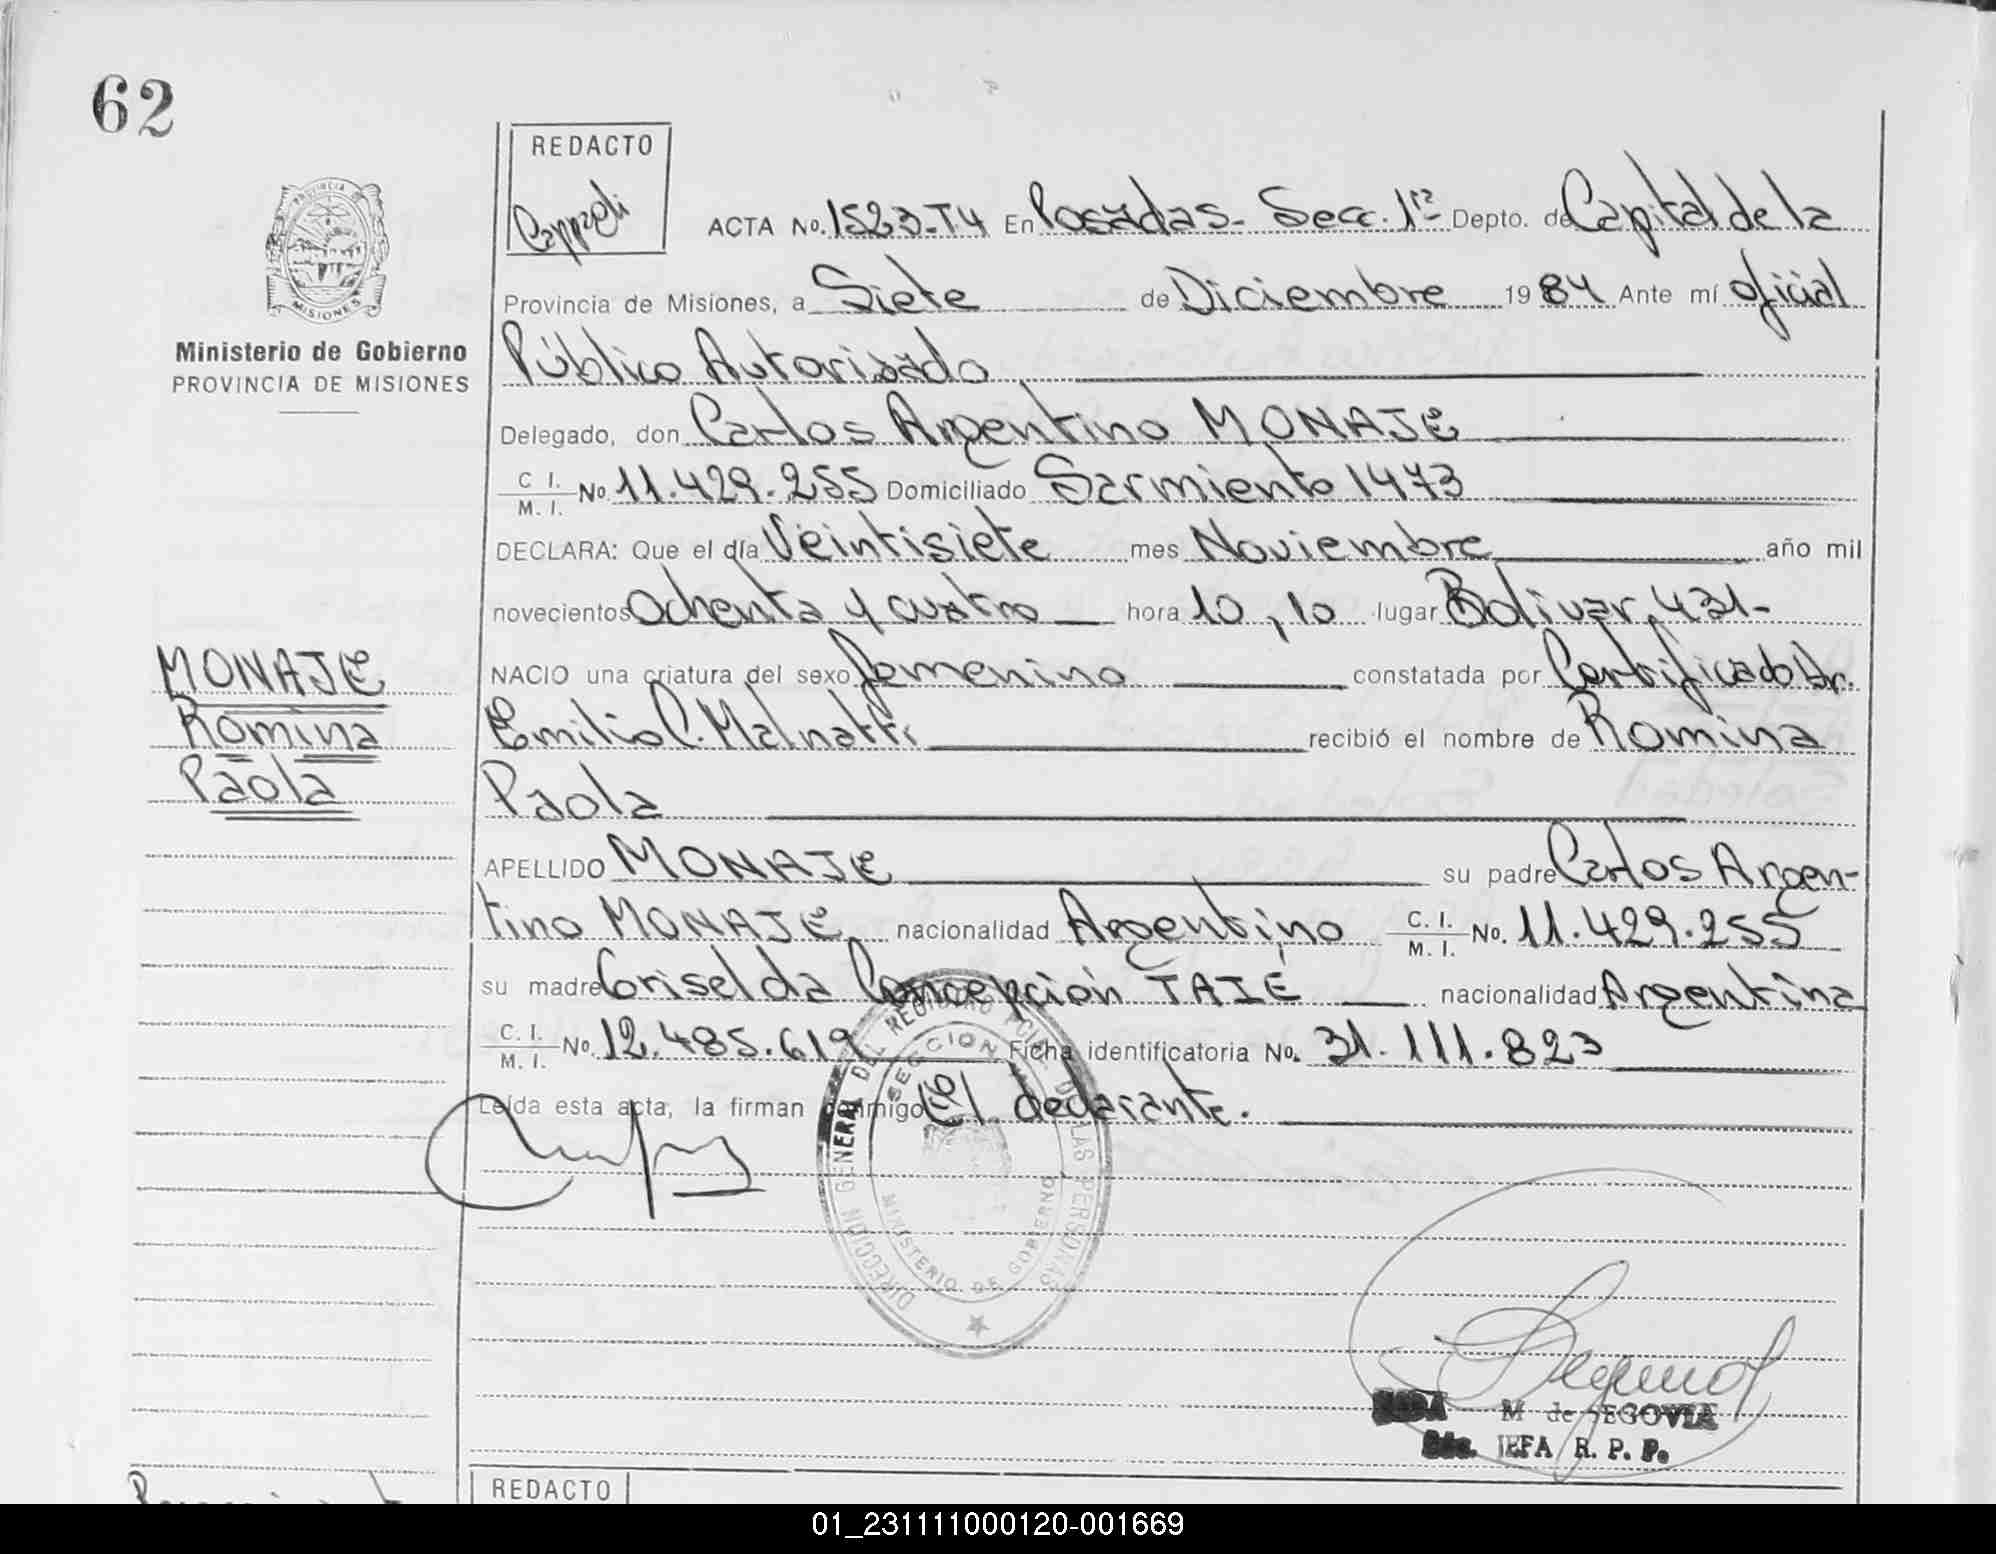 62
REDACTO
PROVINCIA DE
MISIONES
Ministerio de Gobierno
PROVINCIA DE MISIONES
ACTA No. 1523-T4 En Posadas- Secc. 1ra Depto. de Capital de la
Provincia de Misiones, a Siete de Diciembre 1984 Ante mí oficial
Público Autorizado
Delegado, don Carlos Argentino MONAJE
C I. M. I. No. 11.429.255 Domiciliado Sarmiento 1473
DECLARA: Que el día Veintisiete mes Noviembre año mil
novecientos Ochenta y cuatro hora 10,10 lugar Bolivar 431-
NACIO una criatura del sexo femenino constatada por Certificado Dr.
Emilio C. Malnatti recibió el nombre de Romina
Paola
MONAJE
Romina
Paola
APELLIDO MONAJE su padre Carlos Argen-
tino MONAJE nacionalidad Argentino C. I. M. I. No. 11.429.255
su madre Griselda Concepción TAIE nacionalidad Argentina
C. I. M. I. No. 12.485.619 Ficha identificatoria No. 31.111.823
Leída esta acta, la firman conmigo El declarante.
DIRECCION GENERAL DEL REGISTRO PCIAL DE LAS PERSONAS
SECCION
MINISTERIO DE GOBIERNO
M de SEGOVIA
JEFA R. P. P.
REDACTO
01_231111000120-001669